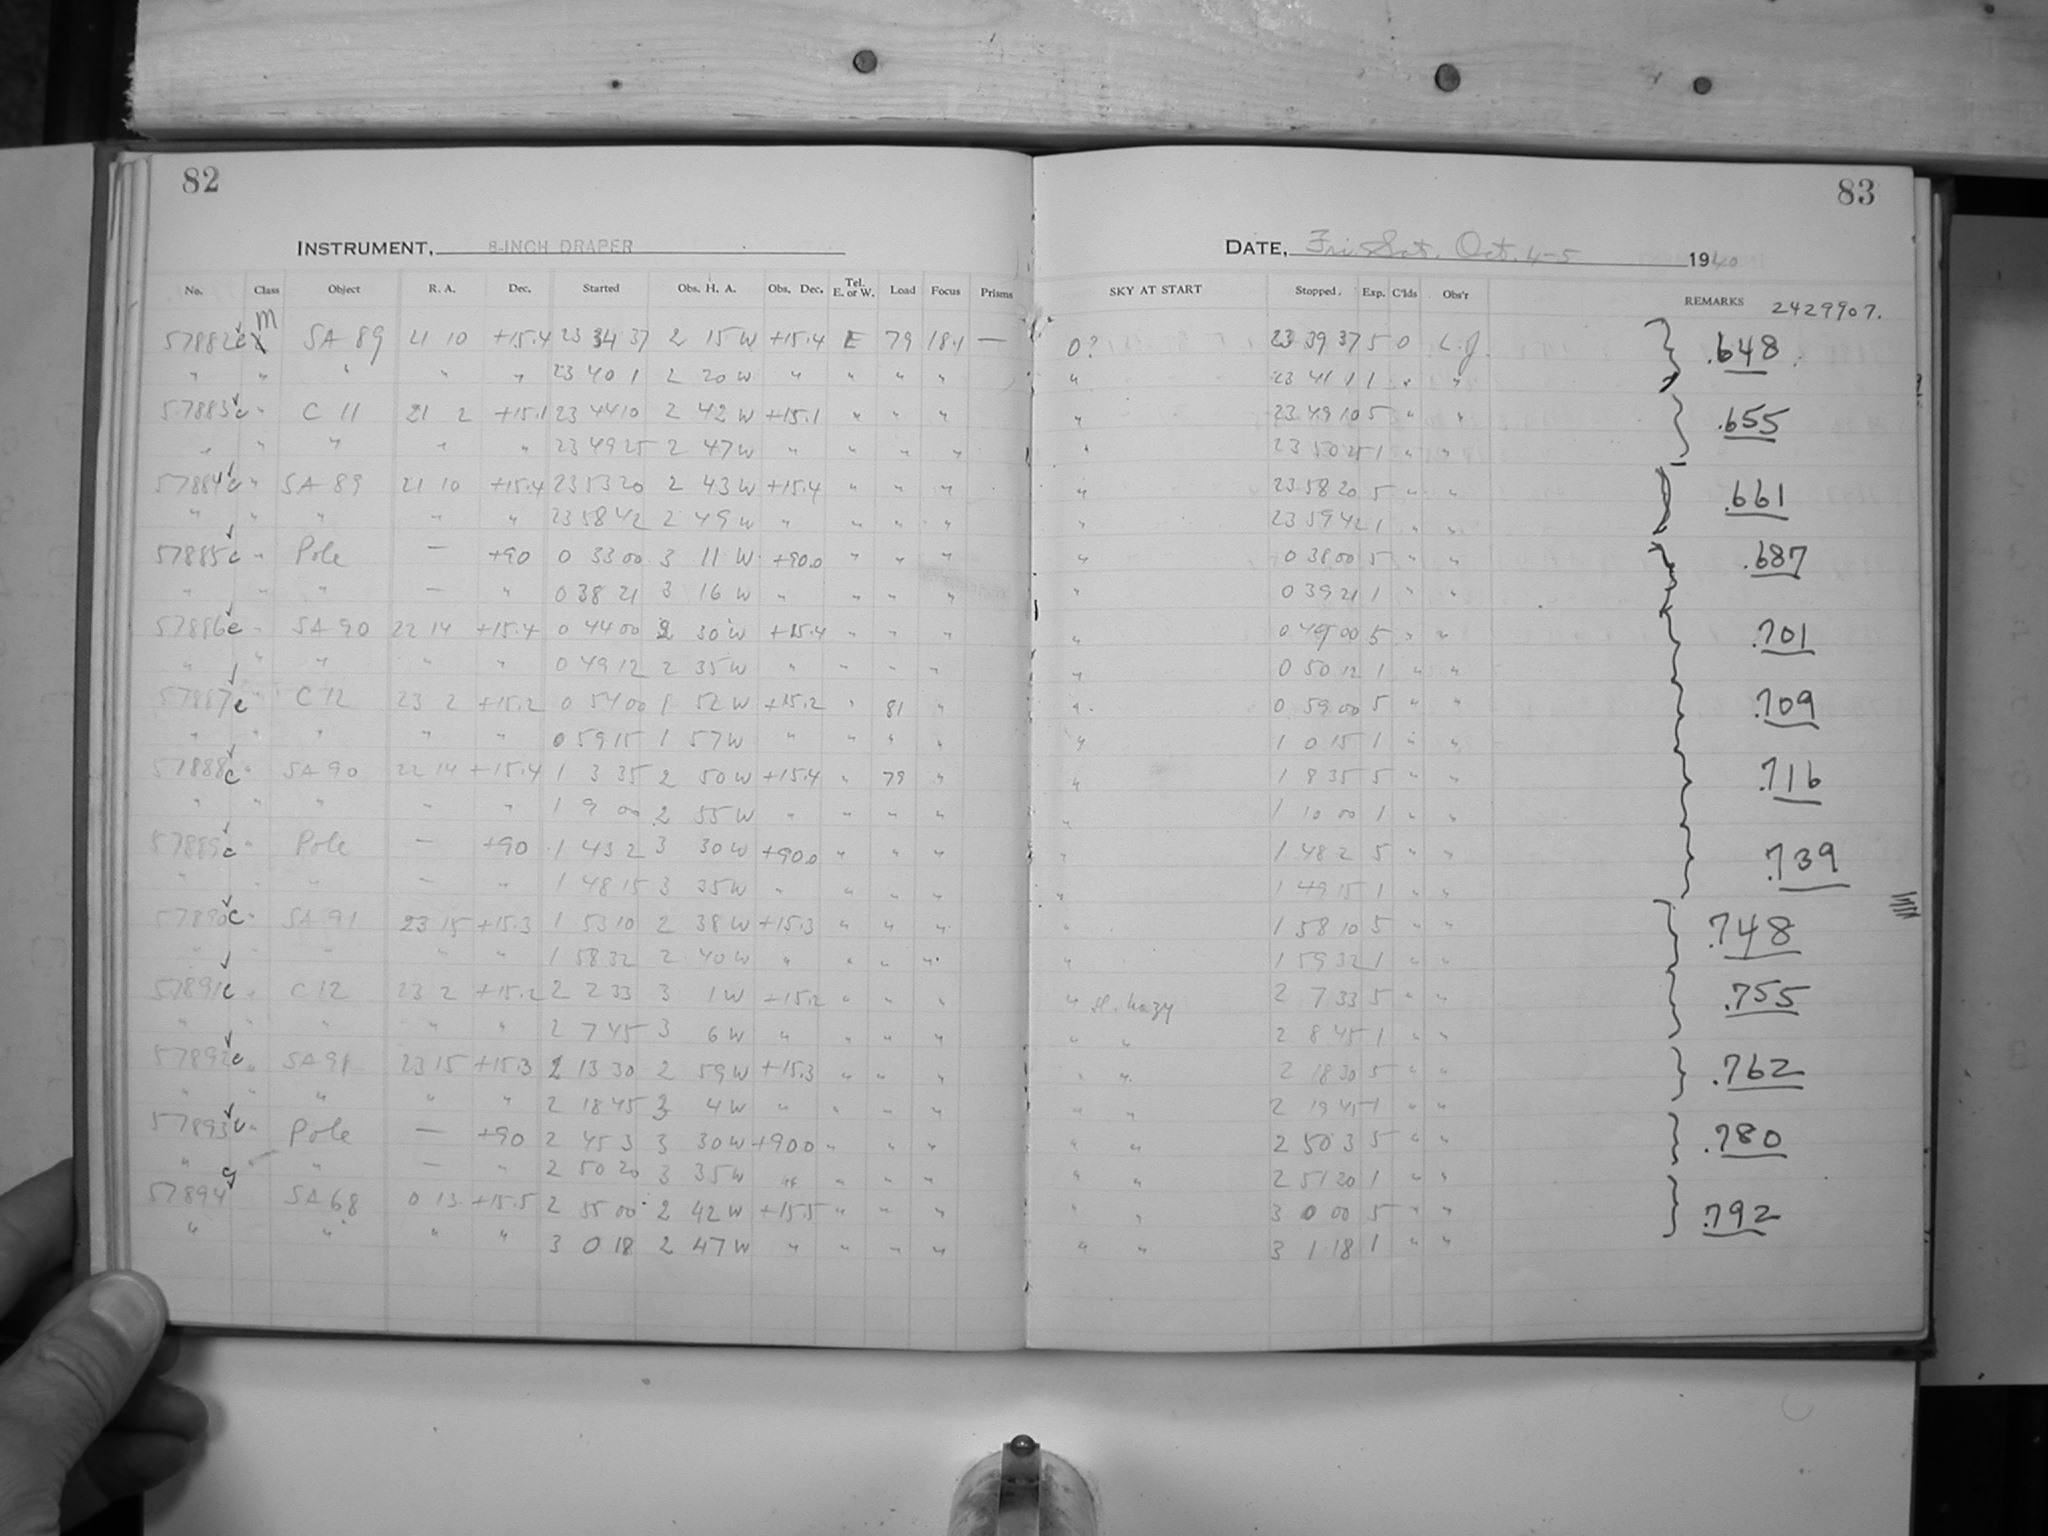 82
83
INSTRUMENT, 8-INCH DRAPER
DATE, Fri. Sat. Oct. 4-5 1940
No. Class Object R. A. Dec. Started Obs. H. A. Obs. Dec. Tel. E. or W. Load Focus Prisms SKY AT START Stopped. Exp. C'lds Obs'r REMARKS 2429907.
m
57882 c SA 89 21 10 +15.4 23 34 37 2 15 W +15.4 E 79 18.1 — 0? 23 39 37 5 0 L.J. .648
" " " " " 23 40 1 2 20 W " " " " " 23 41 1 1 " "
57883 c " C 11 21 2 +15.1 23 44 10 2 42 W +15.1 " " " " 23 49 10 5 " " .655
" " " " " 23 49 25 2 47 W " " " " " 23 50 25 1 " "
57884 c " SA 89 21 10 +15.4 23 53 20 2 43 W +15.4 " " " " 23 58 20 5 " " .661
" " " " " 23 58 42 2 49 W " " " " " 23 59 42 1 " "
57885 c " Pole — +90 0 33 00 3 11 W +90.0 " " " " 0 38 00 5 " " .687
" " " — " 0 38 21 3 16 W " " " " " 0 39 21 1 " "
57886 c " SA 90 22 14 +15.4 0 44 00 2 30 W +15.4 " " " " 0 49 00 5 " " .701
" " " " " 0 49 12 2 35 W " " " " " 0 50 12 1 " "
57887 c " C 12 23 2 +15.2 0 54 00 1 52 W +15.2 " 81 " " 0 59 00 5 " " .709
" " " " " 0 59 15 1 57 W " " " " " 1 0 15 1 " "
57888 c " SA 90 22 14 +15.4 1 3 35 2 50 W +15.4 " 79 " " 1 8 35 5 " " .716
" " " " " 1 9 00 2 55 W " " " " " 1 10 00 1 " "
57889 c " Pole — +90 1 43 2 3 30 W +90.0 " " " " 1 48 2 5 " " .739
" " " — " 1 48 15 3 35 W " " " " " 1 49 15 1 " "
57890 c " SA 91 23 15 +15.3 1 53 10 2 38 W +15.3 " " " " 1 58 10 5 " " .748
" " " " " 1 58 32 2 40 W " " " " " 1 59 32 1 " "
57891 c " C 12 23 2 +15.2 2 2 33 3 1 W +15.2 " " " " sl. hazy 2 7 33 5 " " .755
" " " " " 2 7 45 3 6 W " " " " " " 2 8 45 1 " "
57892 c " SA 91 23 15 +15.3 2 13 30 2 59 W +15.3 " " " " " 2 18 30 5 " " .762
" " " " " 2 18 45 3 4 W " " " " " " 2 19 45 1 " "
57893 c " Pole — +90 2 45 3 3 30 W +90.0 " " " " " 2 50 3 5 " " .780
" " " — " 2 50 20 3 35 W " " " " " " 2 51 20 1 " "
57894 SA 68 0 13 +15.5 2 55 00 2 42 W +15.5 " " " " " 3 0 00 5 " " .792
" " " " 3 0 18 2 47 W " " " " " " 3 1 18 1 " "